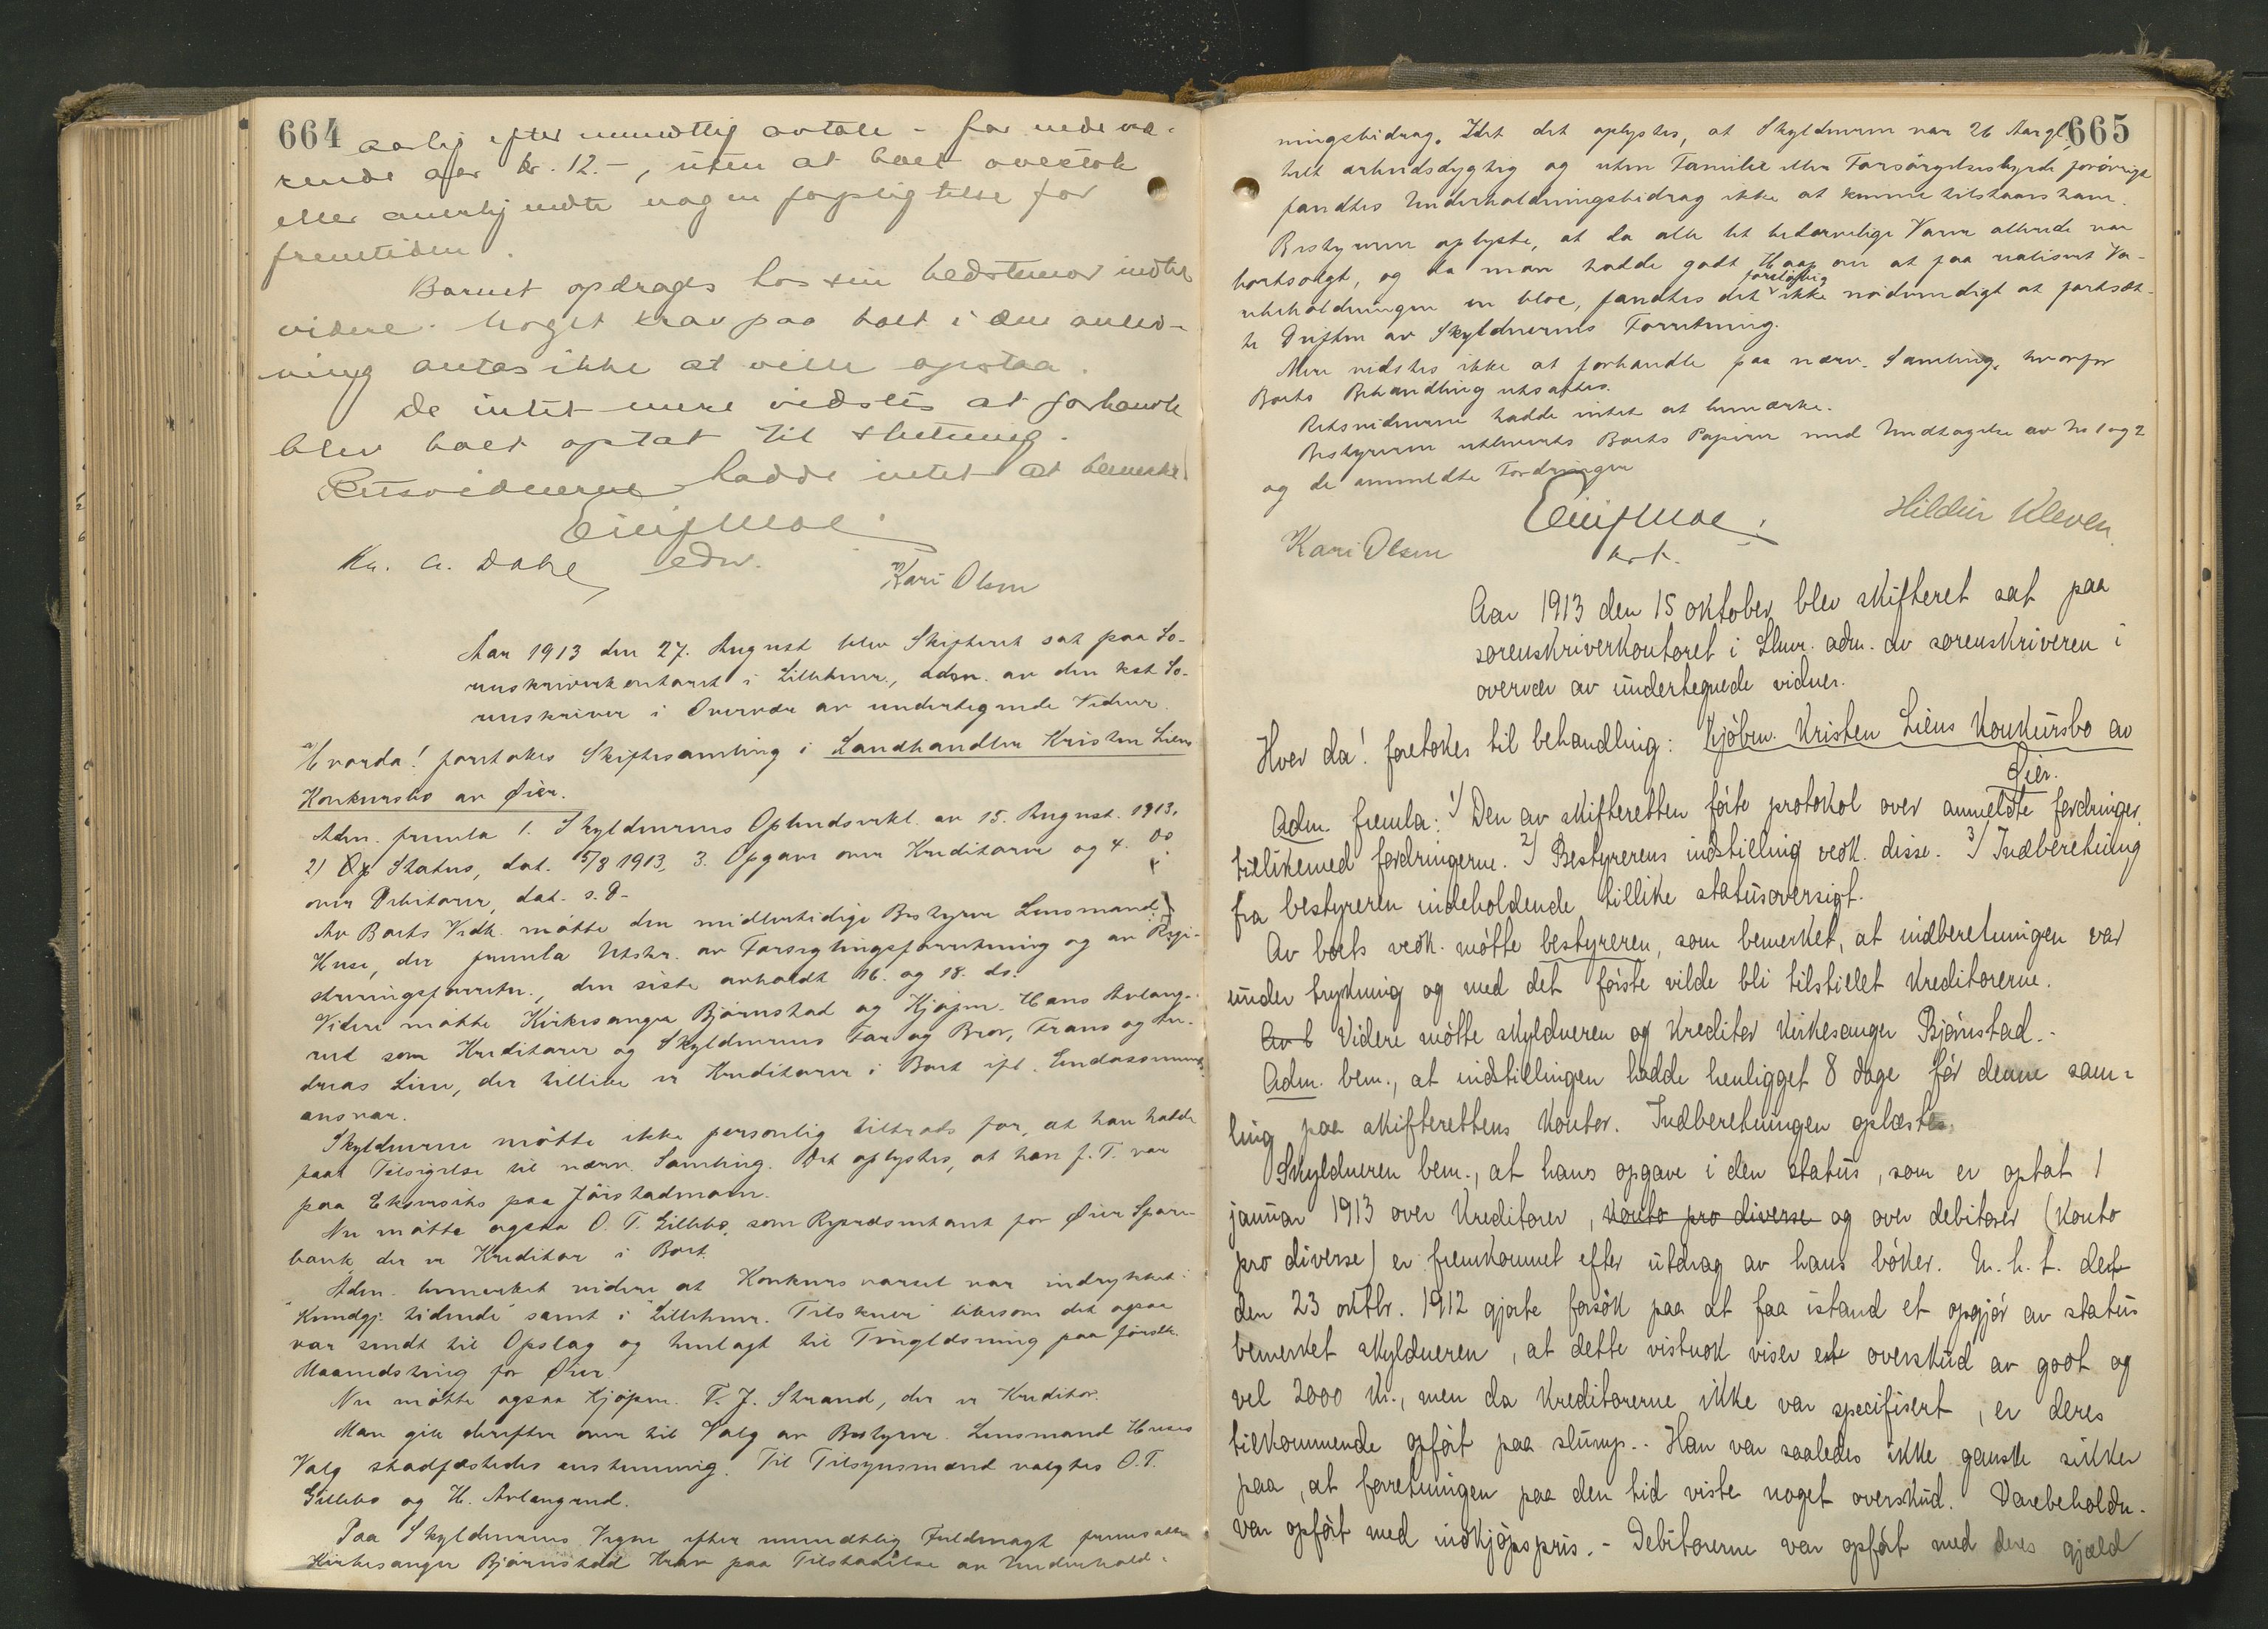 664
aarlig efter mundtlig avtale - for nedevæ-
rende aar kr. 12.-, uten at boet overtok
eller anerkjendte nogen forpligtelse for
fremtiden.
Barnet opdrages hos sin bedstemor indtil
videre. Noget krav paa boet i den anled-
ning antas ikke at ville opstaa.
Da intet mere vidstes at forhandle
blev boet optat til slutning.
Retsvidnerne hadde intet at bemerke
Einif Moe
Kr. A. Dahl, edv. Kari Olsen
Aar 1913 den 27. August blev Skifteret sat paa So-
renskriverkontoret i Lillehmr., adm. av den kst. So-
renskriver i Overvær av undertegnede Vidner.
Hvorda! foretokes Skiftesamling i Landhandler Kristen Liens
Konkursbo av Øier.
Adm. fremla 1. Skyldnerens Opbudserkl. av 15. August 1913.
2) Status, dat. 5/8 1913, 3. Opgave over Kreditorer og 4. do
over Debitorer, dat. s. D-
Av Boets Vedk. møtte den midlertidige Bestyrer Lensmand
Huse, der fremla Utskr. av Forseglingsforretning og av Regi-
streringsforretn., den siste avholdt 16. og 18. ds.
Videre møtte Kirkesanger Bjørnstad og Kjøpm. Hans Avlang-
rud som Kreditorer og Skyldnerens Far og Bror, Frans og An-
dreas Lien, der tillike er Kreditorer i Boet ifl. Endossements
ansvar.
Skyldneren møtte ikke personlig tiltrods for, at han hadde
faat Tilsigelse til nærv. Samling. Det oplystes, at han f. T. var
paa Eksersits paa Jørstadmoen.
Nu møtte ogsaa O. T. Gillebo, som Repræsentant for Øier Spare-
bank, der er Kreditor i Boet.
Adm. bemerket videre at Konkursvarsel var indrykket i
"Kundgj. tidende" samt i "Lillehmr. Tilskuer" likesom det ogsaa
var sendt til Opslag og henlagt til Tinglæsning paa første
Maanedsting for Øier.
Nu møtte ogsaa Kjøpm. F. J. Strand, der er Kreditor.
Man gik derefter over til Valg av Bestyrer. Lensmand Huses
Valg stadfæstedes enstemmig. Til Tilsynsmænd valgtes O. T.
Gillebo og H. Avlangrud.
Paa Skyldnerens Vegne efter mundtlig Fuldmagt fremsatte
Kirkesanger Bjørnstad Krav paa Tilstaaelse av Underhold-
665
ningsbidrag. Idet det oplystes, at Skyldneren var 26 Aar gl.,
helt arbeidsdygtig og uten Familie eller Forsørgelsesbyrde forøvrigt
fandtes Underholdningsbidrag ikke at kunne tilstaaes ham.
Bestyreren oplyste, at da alle let bedærvelige Varer allerede var
bortsolgt, og da man hadde godt Haap om at faa realisert Va-
rebeholdningen en bloc, fandtes det foreløbig ikke nødvendigt at fortsæt-
te Driften av Skyldnerens Forretning.
Mere vidstes ikke at forhandle paa nærv. Samling, hvorfor
Boets Behandling utsattes.
Retsvidnerne hadde intet at bemærke.
Bestyreren utleverts Boets Papirer med Undtagelse av No 1 og 2
og de anmeldte Fordringer
Einif Moe Hildur Kleven.
Kari Olsen kst.
Aar 1913 den 15 oktober blev skifteret sat paa
sorenskriverkontoret i Lhmr. adm. av sorenskriveren i
overvær av undertegnede vidner.
Hvor da! foretokes til behandling: Kjøbm. Kristen Liens Konkursbo av
Øier.
Adm. fremla: 1) Den av skifteretten førte protokol over anmeldte fordringer,
tillikemed fordringerne. 2) Bestyrerens indstilling vedk. disse. 3) Indberetning
fra bestyreren indeholdende tillike statusoversigt.
Av boets vedk. møtte bestyreren, som bemerket, at indberetningen var
under trykning og med det første vilde bli tilstillet kreditorerne.
Av b Videre møtte skyldneren og kreditor kirkesanger Bjørnstad.-
Adm. bem., at indstillingen hadde henligget 8 dage før denne sam-
ling paa skifterettens kontor. Indberetningen oplæstes.
Skyldneren bem., at hans opgave i den status, som er optat 1
januar 1913 over kreditorer, konto pro diverse og over debitorer (konto
pro diverse) er fremkommet efter utdrag av hans bøker. M. h. t. det
den 23 oktbr. 1912 gjorte forsøk paa at faa istand et opgjør av status
bemerket skyldneren, at dette vistnok viser et overskud av godt og
vel 2000 kr., men da kreditorerne ikke var specifisert, er deres
tilkommende opført paa slump.. Han var saaledes ikke ganske sikker
paa, at forretningen paa den tid viste noget overskud. Varebeholdn.
var opført med indkjøpspris.- Debitorerne var opført med deres gjæld